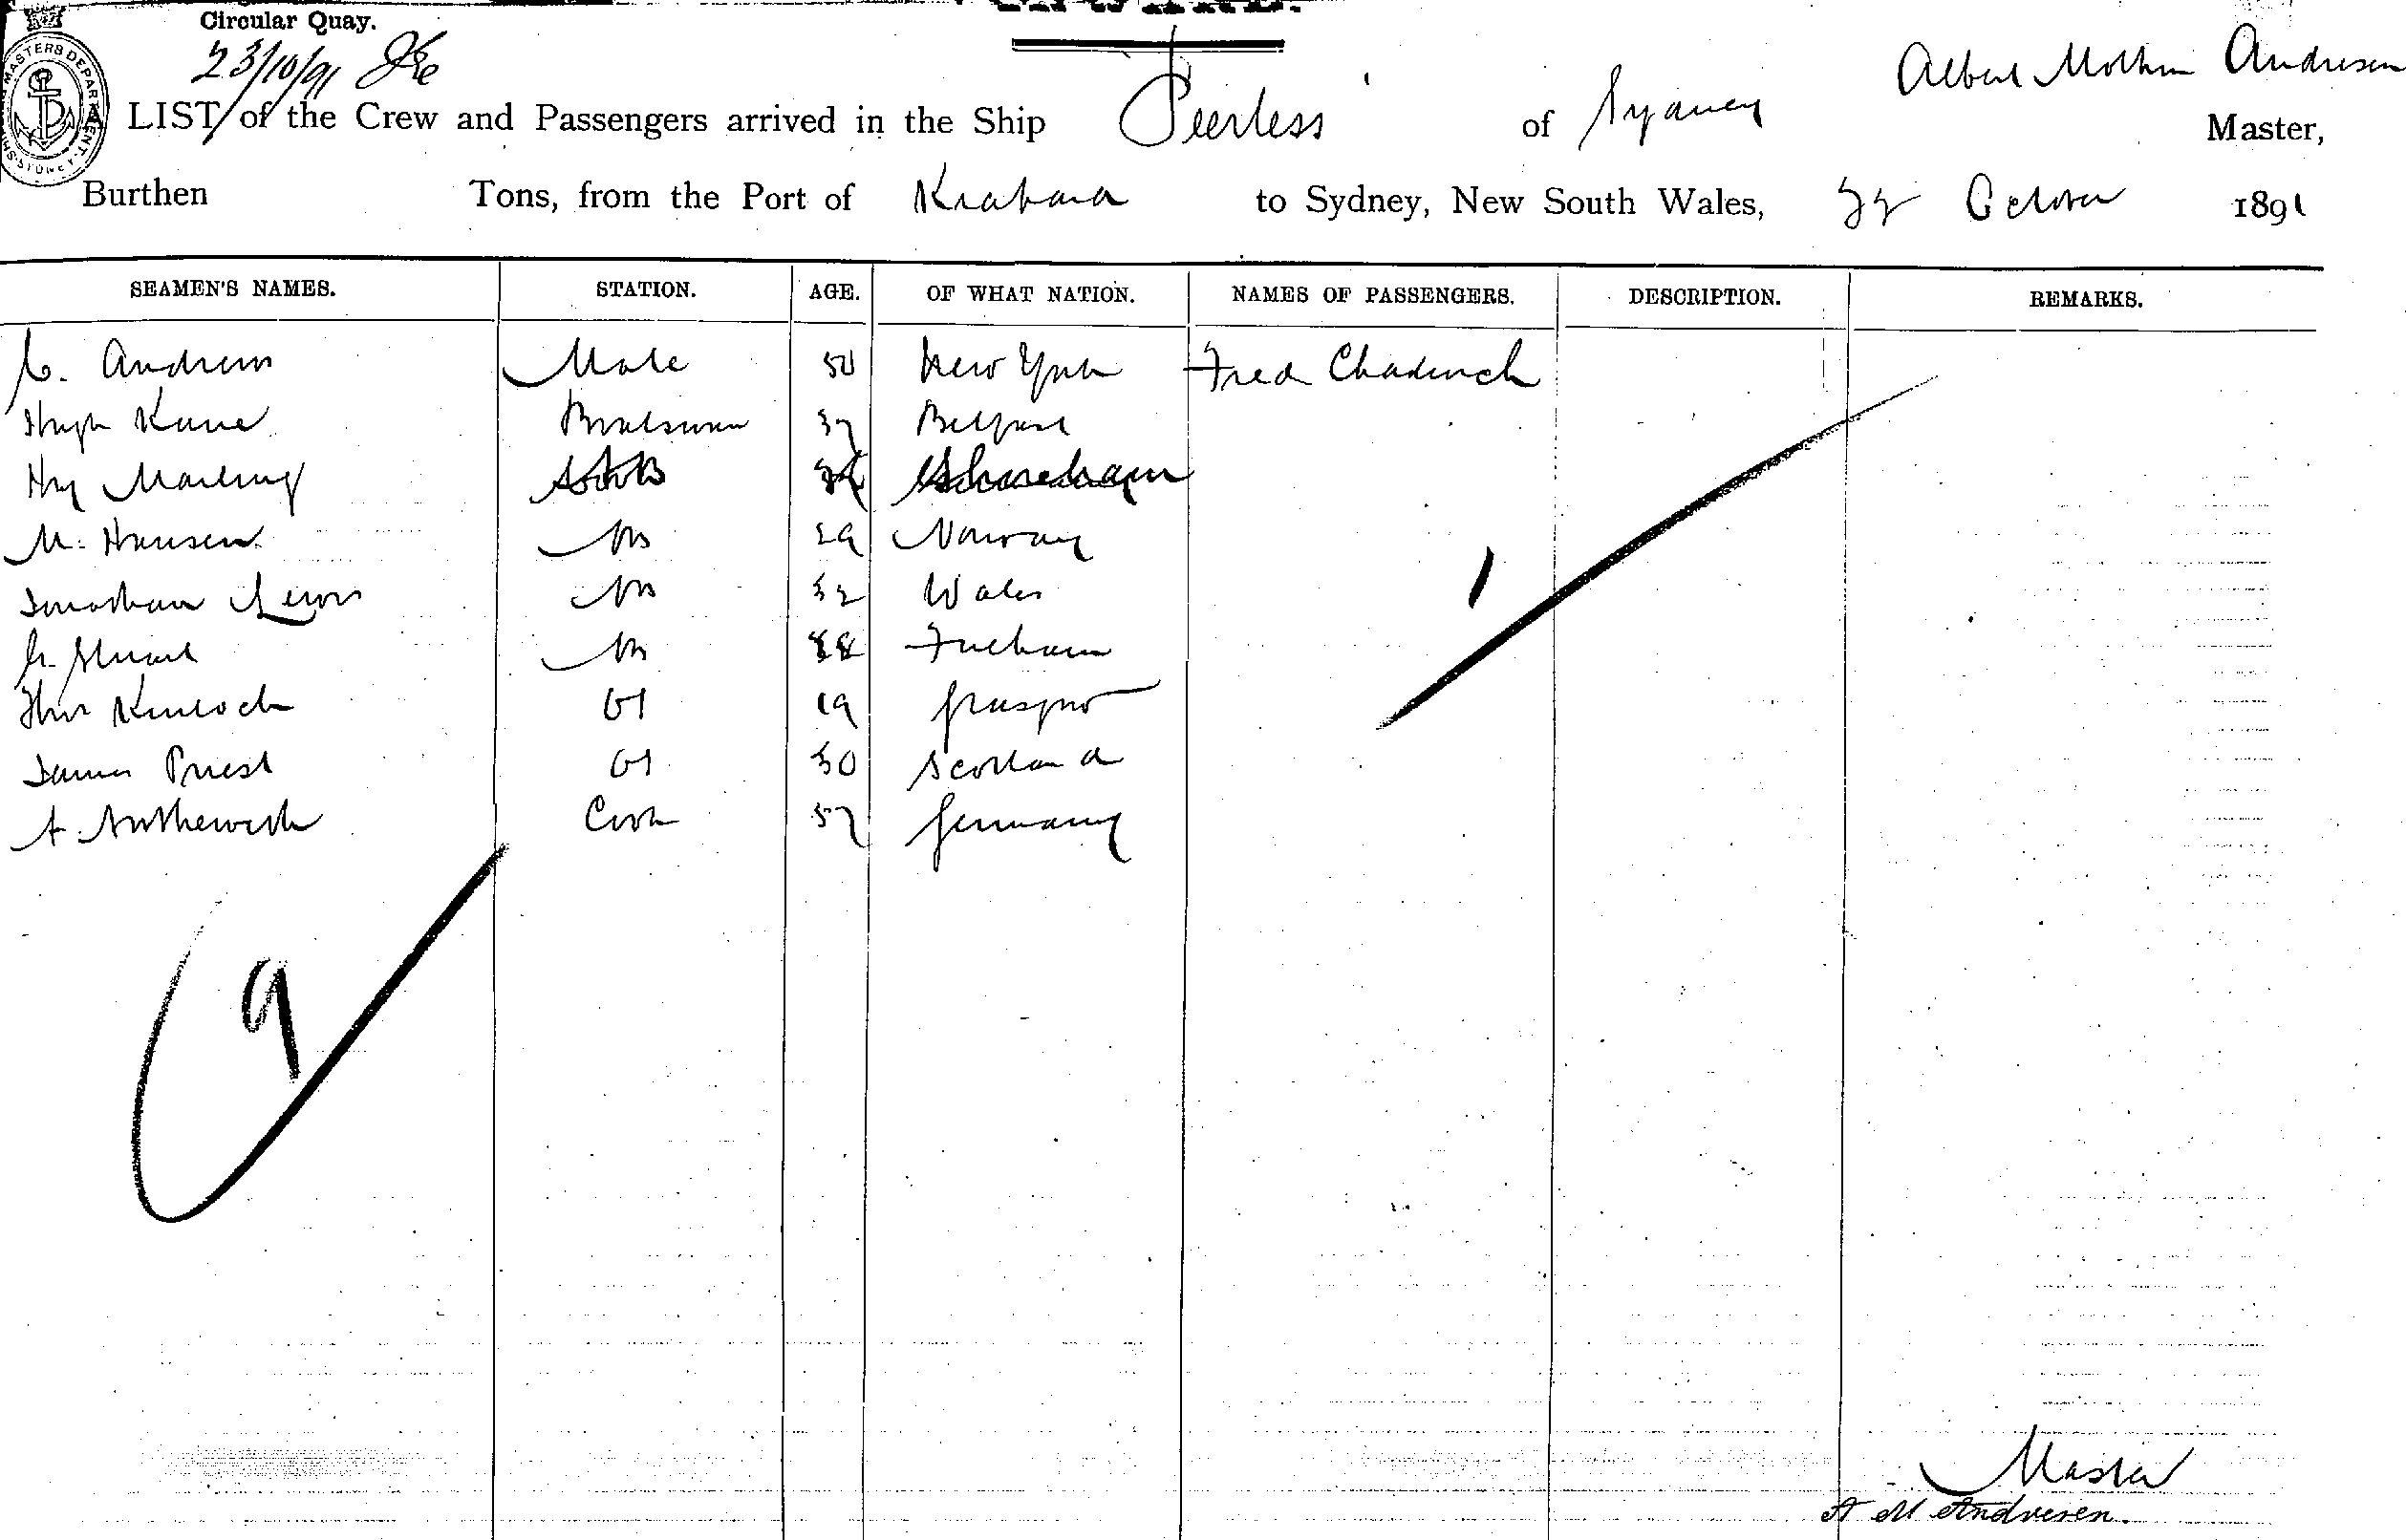 Circular Quay.
23/10/91
LIST of the Crew and Passengers arrived in the Ship Peerless of Sydney Albert Andresen Master,
Burthen Tons, from the Port of to Sydney, New South Wales, 22 October 1891
SEAMEN'S NAMES. STATION. AGE. OF WHAT NATION. NAMES OF PASSENGERS. DESCRIPTION. REMARKS.
Mate 50 New York Fred Chadwick
Hugh Kane Boatswain 37 Belfast
Hy
M. Hansen AB 29 Norway
Jonathan Lewis AB 32 Wales
G. Stuart AB
Kinloch OS 19 Glasgow
James Priest OS 30 Scotland
A. Cook 57 Germany
1
9
Master
A M Andresen.